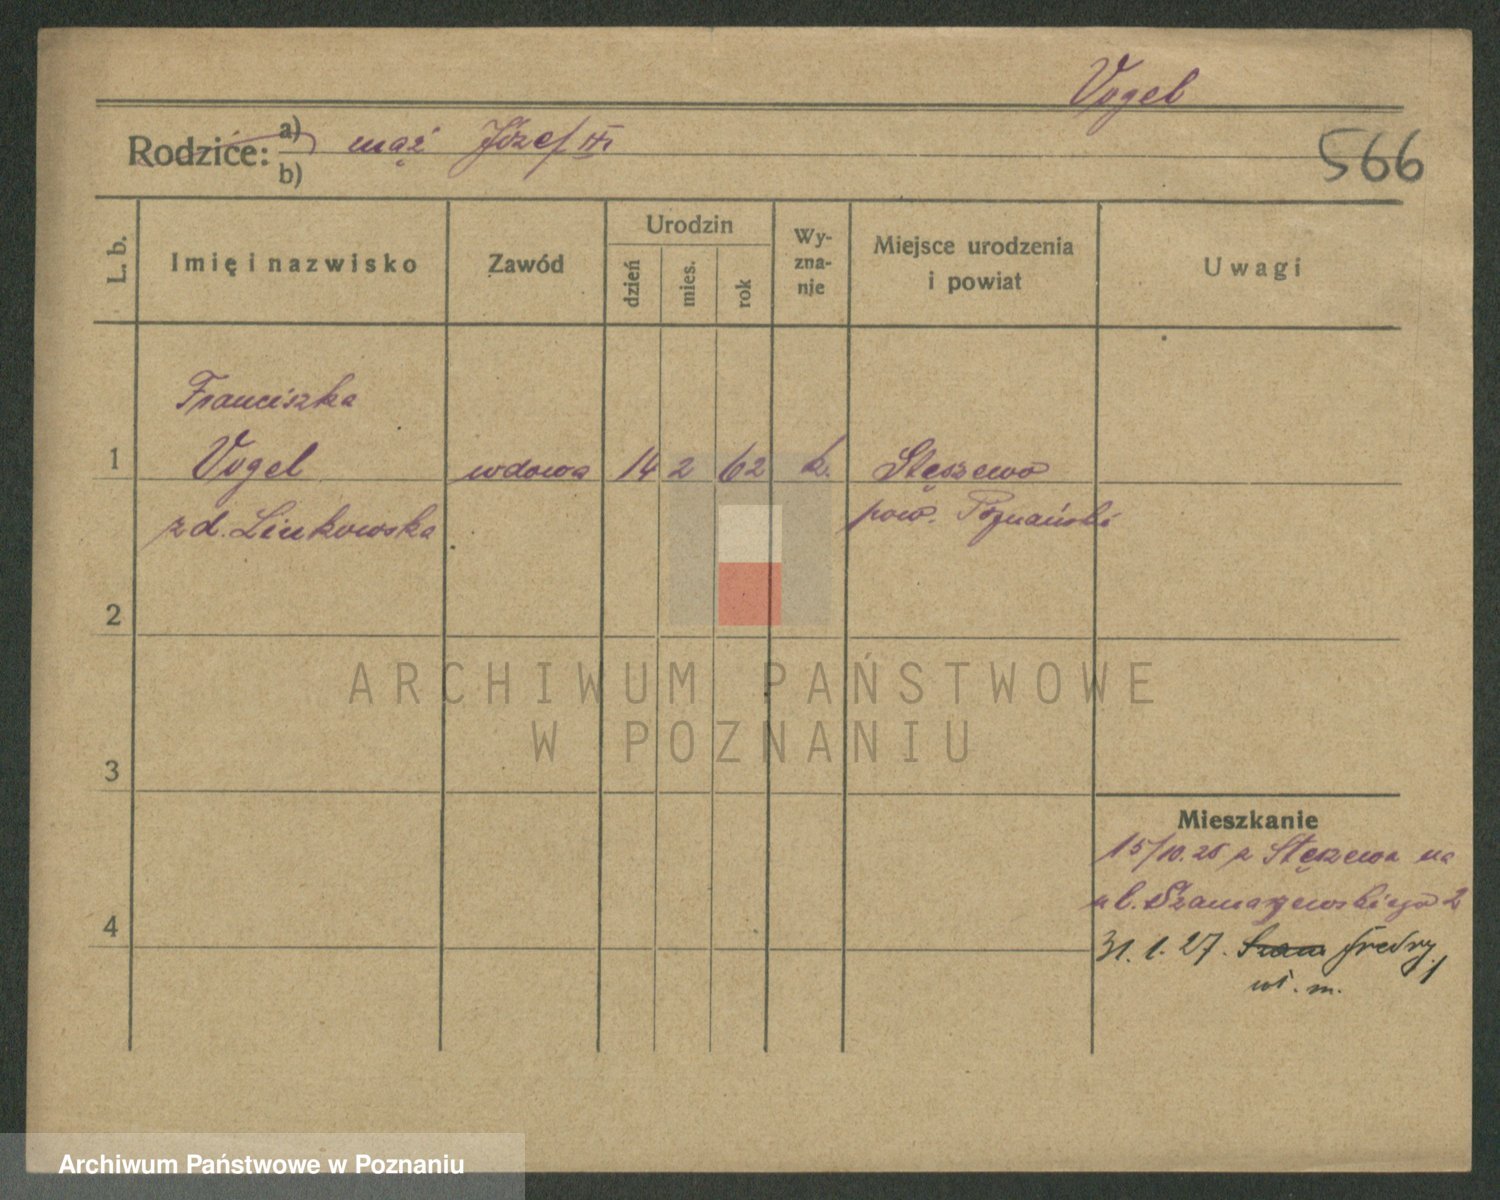 Vogel
Rodzice: a) mąż Józef
b)
566
L. b.
Imię i nazwisko
Zawód
Urodzin
dzień
mies.
rok
Wy-
zna-
nie
Miejsce urodzenia
i powiat
Uwagi
Franciszka
1 Vogel wdowa 14 2 62 k. Stęszewo
z d. Linkowska pow. Poznański
2
ARCHIWUM PAŃSTWOWE
W POZNANIU
3
Mieszkanie
15/10.25 z Stęszewa na
ul. Szamarzewskiego 2
4
31.1.27. Fredry 1
m.
Archiwum Państwowe w Poznaniu